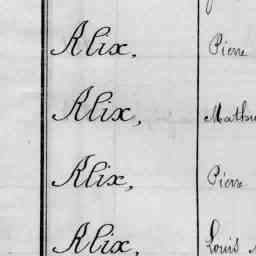 Alix. Pierre
Alix, 
Alix, Pierre
Alix, Louis